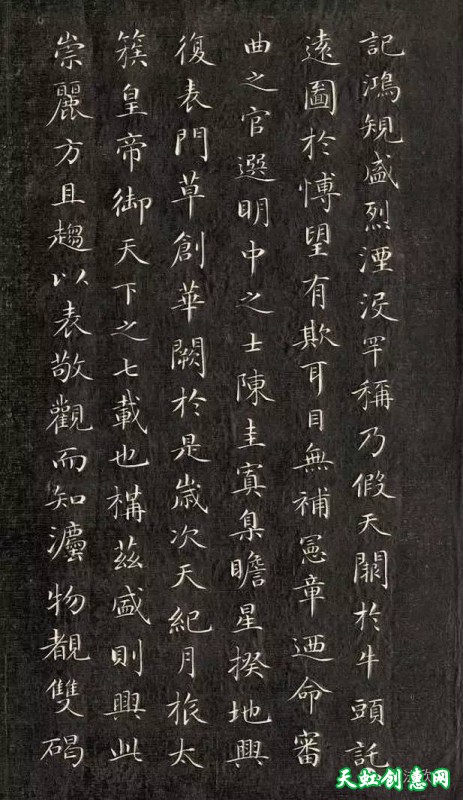 記鴻規盛烈湮沒罕稱乃假天闕於牛頭託
遠圖於愽望有欺耳目無補憲章迺命審
曲之官選明中之士陳圭寘臬瞻星揆地興
復表門草創華闕於是歲次天紀月旅太
簇皇帝御天下之七載也構茲盛則興此
崇麗方且趨以表敬觀而知灋物覩雙碣
天虹创意网